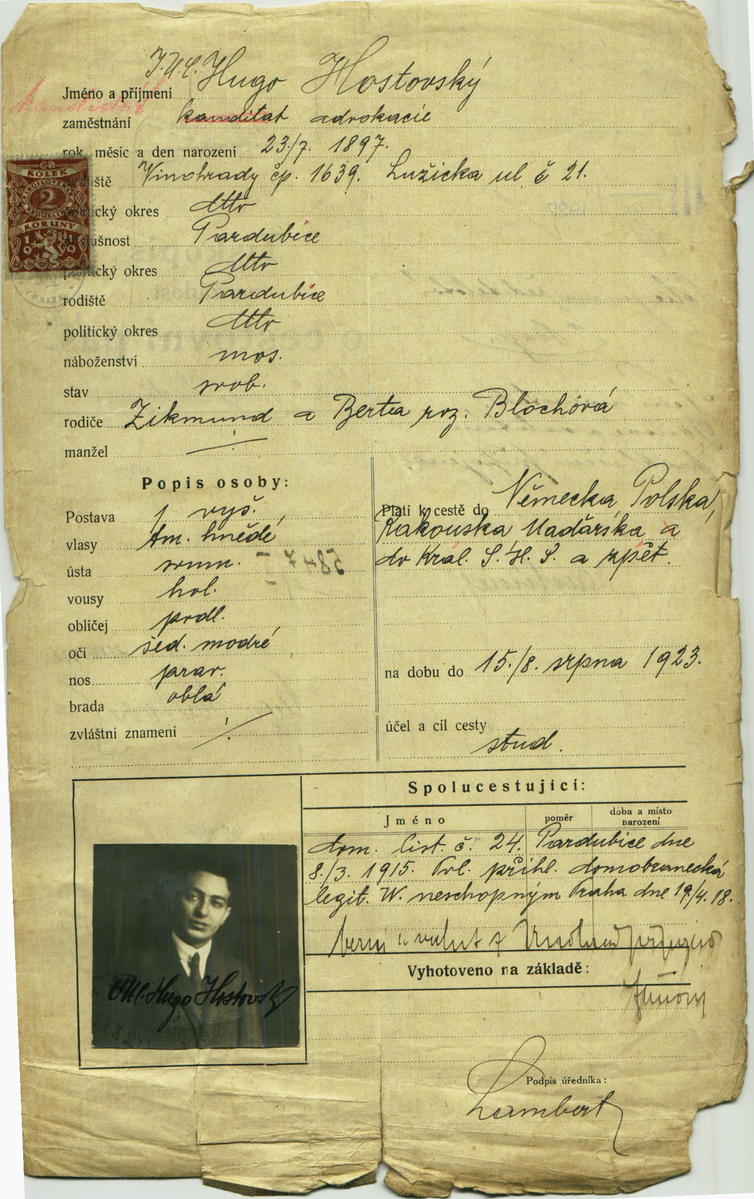 J.U.C. Hugo Hostovský
Jméno a příjmení
kandidát
zaměstnání kanditat advokacie
rok, měsíc a den narození 23/7. 1897.
Vinohrady čp. 1639. Lužická ul č 21.
KOLEK
2
KORUNY
1919
okres dtto
Pardubice
okres dtto
rodiště Pardubice
politický okres dtto
náboženství mos.
stav svob.
rodiče Zikmund a Berta roz. Blochová
manžel
Popis osoby:
Postava 1 vyš.
vlasy tm. hnědé
ústa soum.
vousy hol.
obličej podl.
oči šed. modré
nos prav.
brada oblá
zvláštní znamení
Platí k cestě do Německa, Polska,
Rakouska Maďarska a
do Král. S. H. S. a zpět.
na dobu do 15./8. srpna 1923.
účel a cíl cesty
stud.
Spolucestující:
Jméno poměr doba a místo narození
dom. list. č. 24. Pardubice dne
8./3. 1915. Pol. přihl. domobranecká
legit. W. neschopným Praha dne 19./4. 18.
Vyhotoveno na základě:
JUC. Hugo Hostovský
Podpis úředníka:
Lambert